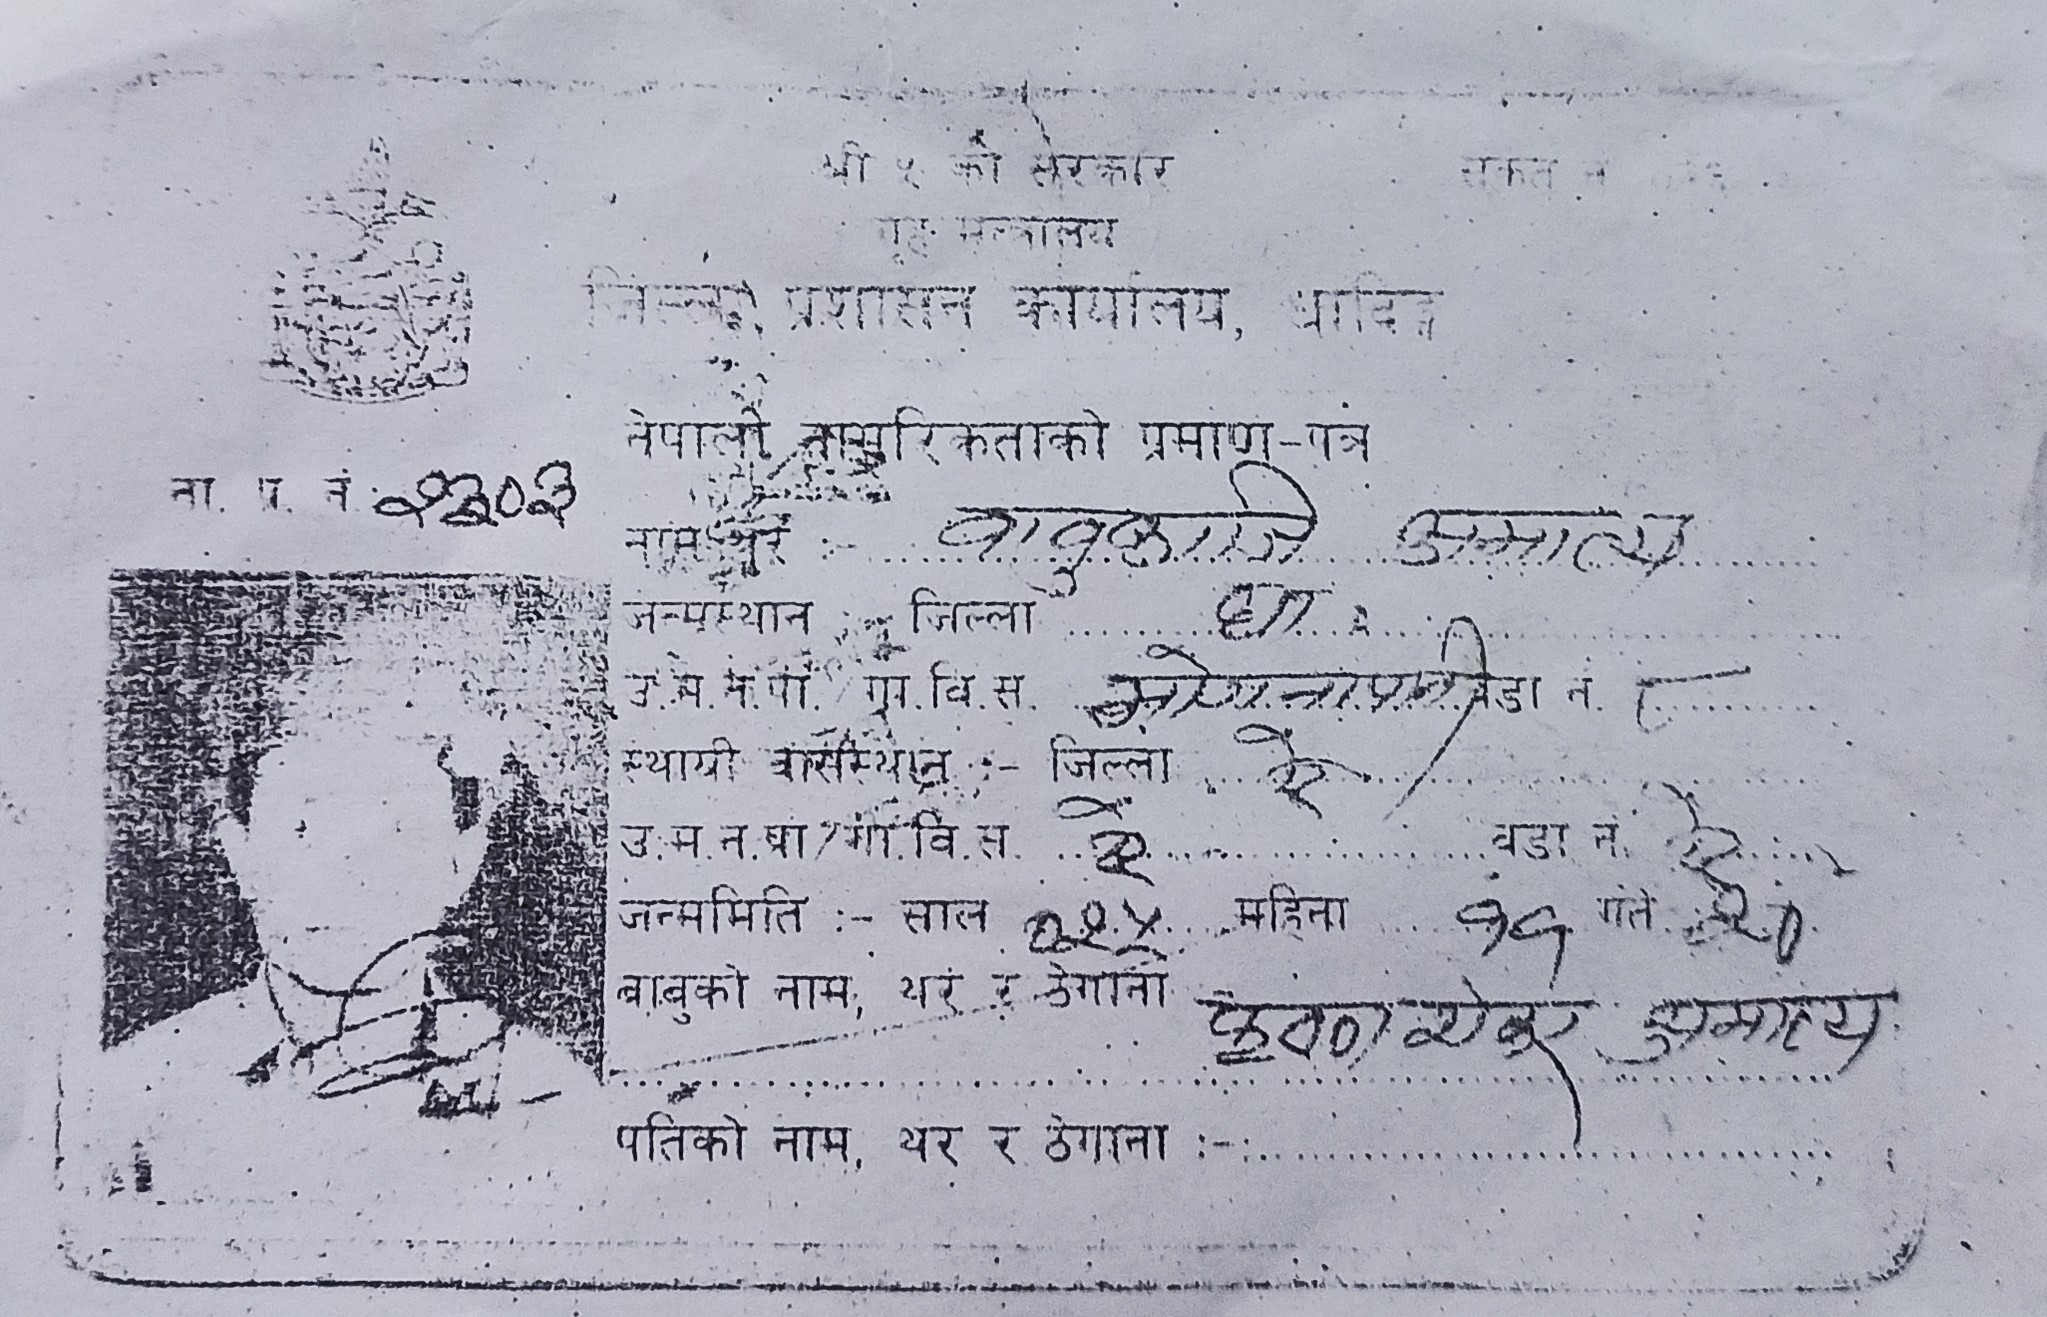 श्री ५ को सरकार
गृह मन्त्रालय
जिल्ला प्रशासन कार्यालय, धादिङ्ग
नेपाली नागरिकताको प्रमाण-पत्र
ना. प्र. नं.
नाम थर :- बाबुकाजी अमात्य
जन्मस्थान :- जिल्ला धा.
उ.म.न.पा./गा.वि.स. वडा नं. ८
स्थायी वासस्थान :- जिल्ला ऐ
उ.म.न.पा/गा.वि.स. ऐ वडा नं. ऐ
जन्ममिति :- साल महिना ११ गते २०
बाबुको नाम, थर र ठेगाना
अमात्य
पतिको नाम, थर र ठेगाना :-